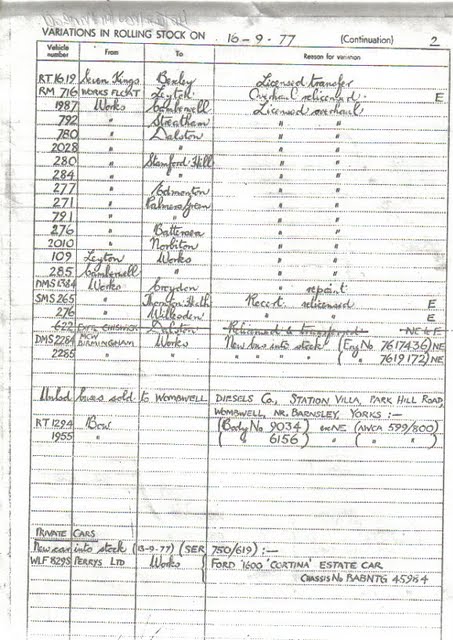 VARIATIONS IN ROLLING STOCK ON 16-9-77 (Continuation) 2
Vehicle number From To Reason for variation
RT 1619 Seven Kings Bexley Licensed transfer
RM 716 WORKS FLOAT Leyton Overhaul relicensed E
1987 Works Camberwell Licensed overhaul
792 " Streatham " "
780 " Dalston " "
2028 " " " "
280 " Stamford Hill " "
284 " " " "
277 " Edmonton " "
271 " Palmers Green " "
791 " " " "
276 " Battersea " "
2010 " Norbiton " "
109 Leyton Works " "
285 Camberwell " " "
DMS 1384 Works Croydon " repaint
SMS 265 " Thornton Heath Recert. relicensed E
276 " Willesden " " E
622 EXTL CHISWICK Dalston Relicensed & transferred NE & E
DMS 2284 NEW BIRMINGHAM Works New bus into stock (Eng No 7617436) NE
2285 " " " " " " ( " 7619172) NE
Unlicd buses sold to WOMBWELL DIESELS Co., STATION VILLA, PARK HILL ROAD,
WOMBWELL, NR. BARNSLEY, YORKS :—
RT 1294 Bow (Body No 9034) exNE (AWCA 599/800)
1955 " ( " 6156) " ( " " )
PRIVATE CARS
New car into stock (13-9-77) (SER 750/619) :—
WLF 829S PERRYS LTD Works FORD '1600' 'CORTINA' ESTATE CAR
CHASSIS No BABNTG 45984